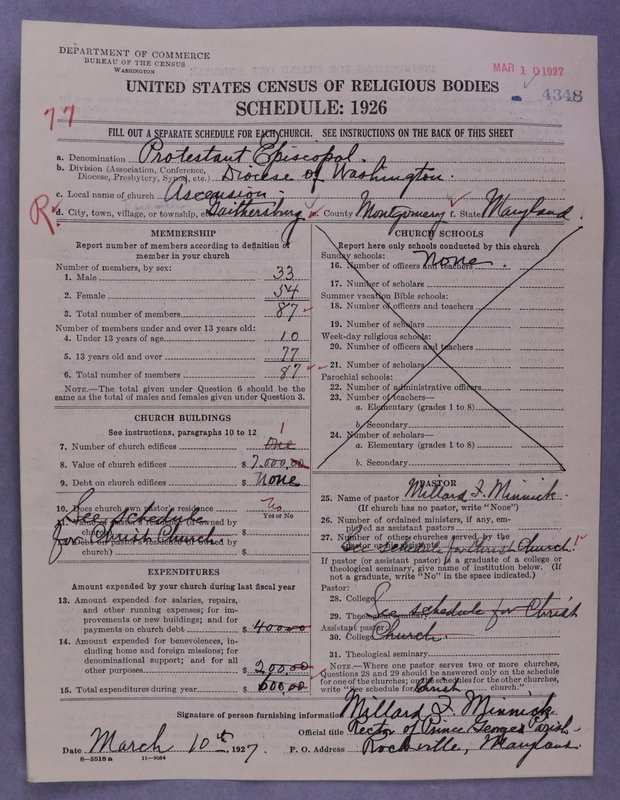 DEPARTMENT OF COMMERCE
BUREAU OF THE CENSUS
WASHINGTON
MAR 10 1927
4348
UNITED STATES CENSUS OF RELIGIOUS BODIES
SCHEDULE: 1926
77
FILL OUT A SEPARATE SCHEDULE FOR EACH CHURCH. SEE INSTRUCTIONS ON THE BACK OF THIS SHEET
a. Denomination Protestant Episcopal.
b. Division (Association, Conference, Diocese, Presbytery, Synod, etc.) Diocese of Washington.
c. Local name of church Ascension
R. d. City, town, village, or township, etc. Gaithersburg e. County Montgomery f. State Maryland.
MEMBERSHIP
Report number of members according to definition of member in your church
Number of members, by sex:
1. Male 33
2. Female 54
3. Total number of members 87
Number of members under and over 13 years old:
4. Under 13 years of age 10
5. 13 years old and over 77
6. Total number of members 87
NOTE.—The total given under Question 6 should be the same as the total of males and females given under Question 3.
CHURCH BUILDINGS
See instructions, paragraphs 10 to 12
1
7. Number of church edifices One
8. Value of church edifices $ 7,000.00
9. Debt on church edifices $ None
10. Does church own pastor's residence? No
Yes or No
11. Value of pastor's residence (if owned by church) $
12. Debt on pastor's residence (if owned by church) $
See schedule for Christ Church
EXPENDITURES
Amount expended by your church during last fiscal year
13. Amount expended for salaries, repairs, and other running expenses; for improvements or new buildings; and for payments on church debt $ 400.00
14. Amount expended for benevolences, including home and foreign missions; for denominational support; and for all other purposes $ 200.00
15. Total expenditures during year $ 600.00
CHURCH SCHOOLS
Report here only schools conducted by this church
Sunday schools:
16. Number of officers and teachers None.
17. Number of scholars
Summer vacation Bible schools:
18. Number of officers and teachers
19. Number of scholars
Week-day religious schools:
20. Number of officers and teachers
21. Number of scholars
Parochial schools:
22. Number of administrative officers
23. Number of teachers—
a. Elementary (grades 1 to 8)
b. Secondary
24. Number of scholars—
a. Elementary (grades 1 to 8)
b. Secondary
PASTOR
25. Name of pastor Millard F. Minnick
(If church has no pastor, write "None")
26. Number of ordained ministers, if any, employed as assistant pastors
27. Number of other churches served by the
See schedule for Christ Church.
If pastor (or assistant pastor) is a graduate of a college or theological seminary, give name of institution below. (If not a graduate, write "No" in the space indicated.)
Pastor:
28. College
29. Theological seminary
See schedule for Christ Church.
Assistant pastor:
30. College
31. Theological seminary
NOTE.—Where one pastor serves two or more churches, Questions 28 and 29 should be answered only on the schedule for one of the churches; on the schedules for the other churches, write "See schedule for Christ church."
Signature of person furnishing information Millard F. Minnick
Official title Rector of Prince George's Parish
Date March 10th, 1927. P. O. Address Rockville, Maryland.
8-5518a 11-9554